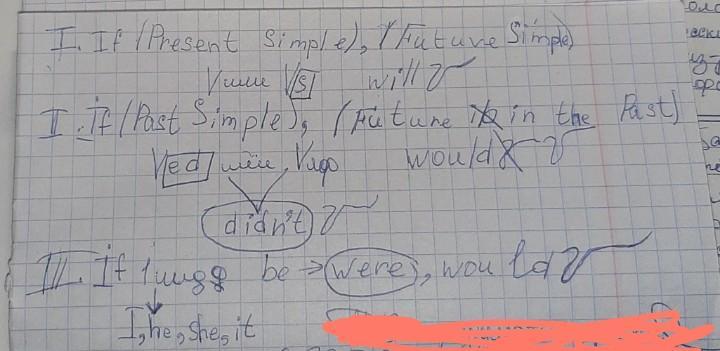 I. If (Present Simple), (Future Simple)
V или V[s] will V
I. if (Past Simple), (Future in the Past)
V[ed] или, V would V
didn't V
III. If be → were, would V
I, he, she, it